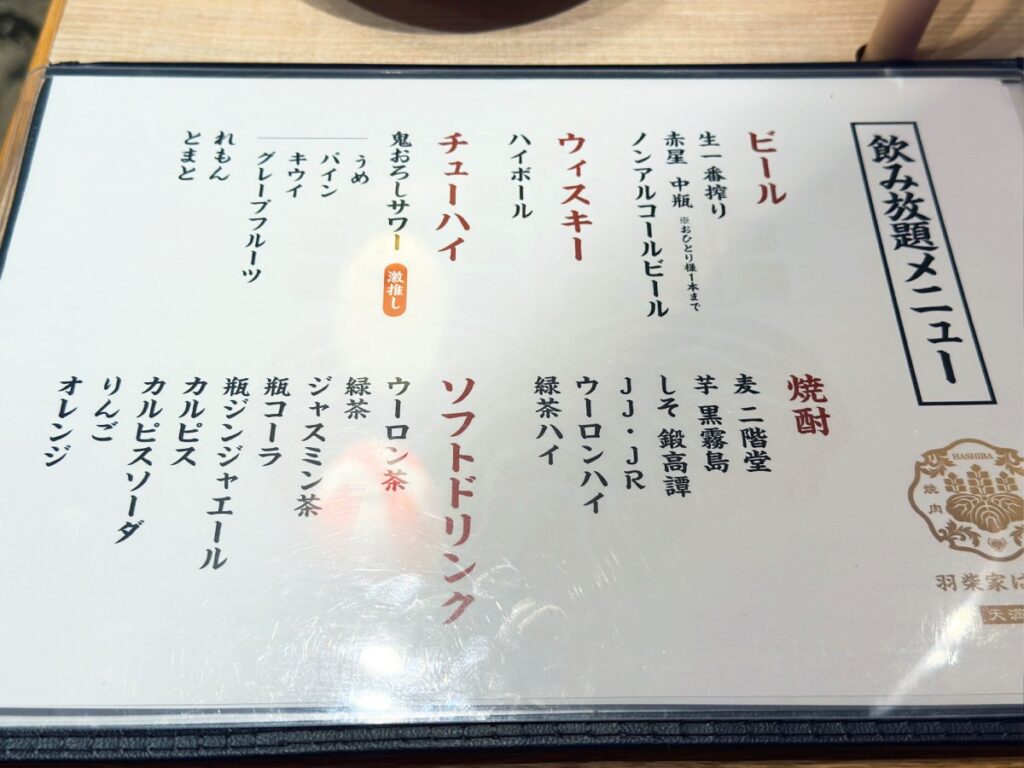 飲み放題メニュー
ビール
生一番搾り
赤星 中瓶 ※おひとり様1本まで
ノンアルコールビール
ウィスキー
ハイボール
チューハイ
鬼おろしサワー 激推し
うめ
パイン
キウイ
グレープフルーツ
れもん
とまと
焼酎
麦 二階堂
芋 黒霧島
しそ 鍛高譚
JJ・JR
ウーロンハイ
緑茶ハイ
ソフトドリンク
ウーロン茶
緑茶
ジャスミン茶
瓶コーラ
瓶ジンジャエール
カルピス
カルピスソーダ
りんご
オレンジ
HASHIBA
焼肉
羽柴家は
天満